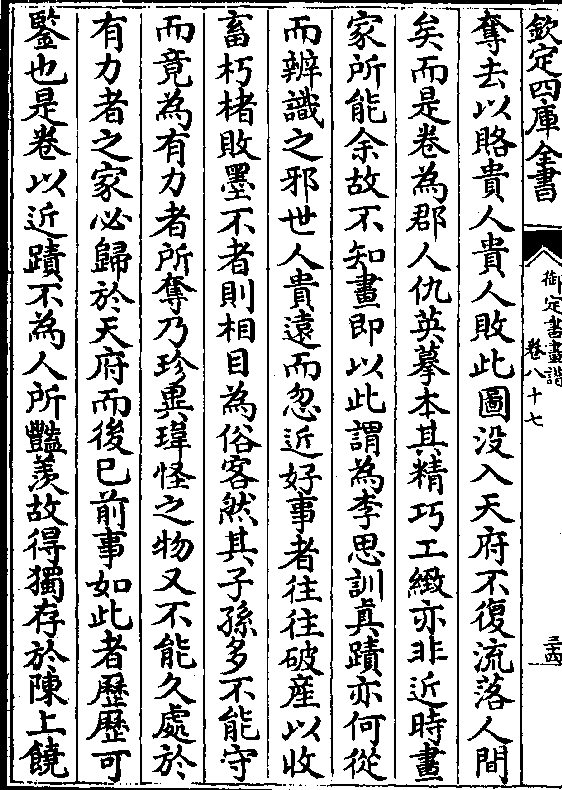 欽定四庫全書
御定書畫譜
卷八十七
三四
奪去以賂貴人貴人敗此圖没入天府不復流落人間
矣而是卷為郡人仇英摹本其精巧工緻亦非近時畫
家所能余故不知畫即以此謂為李思訓真蹟亦何從
而辨識之邪世人貴遠而忽近好事者往往破産以收
畜朽楮敗墨不者則相目為俗客然其子孫多不能守
而竟為有力者所奪乃珍異瑋怪之物又不能久處於
有力者之家必歸於天府而後已前事如此者歷歷可
鑒也是卷以近蹟不為人所豔羨故得獨存於陳上饒